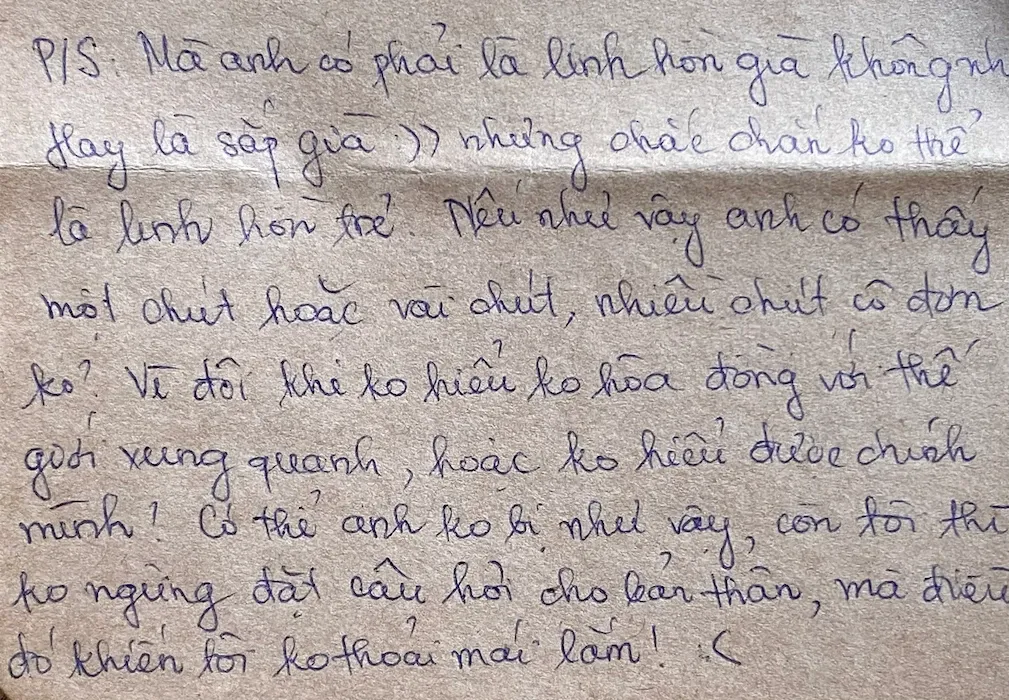 P/S: Mà anh có phải là linh hồn già không nh
Hay là sắp già :)) nhưng chắc chắn ko thể
là linh hồn trẻ. Nếu như vậy anh có thấy
một chút hoặc vài chút, nhiều chút cô đơn
ko? Vì đôi khi ko hiểu ko hòa đồng với thế
giới xung quanh, hoặc ko hiểu được chính
mình! Có thể anh ko bị như vậy, còn tôi thì
ko ngừng đặt câu hỏi cho bản thân, mà điều
đó khiến tôi ko thoải mái lắm! :<